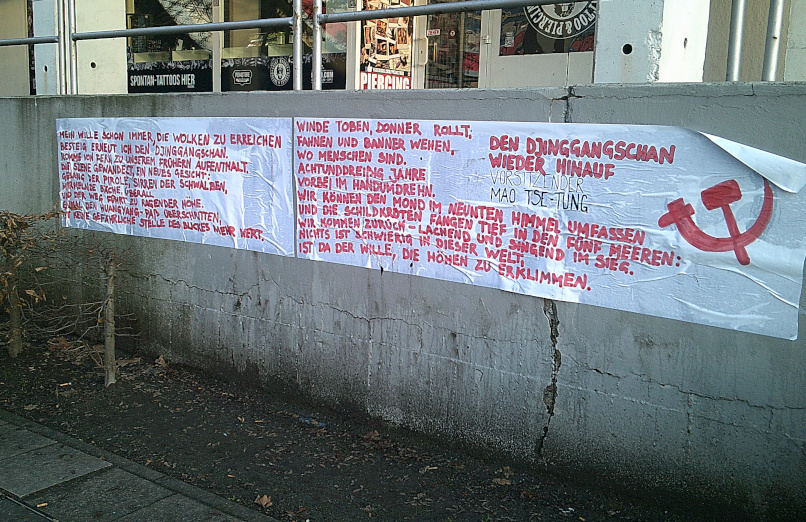 SPONTAN-TATTOOS HIER
PIERCING
TATTOO &
PIERCING
MEIN WILLE SCHON IMMER, DIE WOLKEN ZU ERREICHEN
BESTEIG ERNEUT ICH DEN DJINGGANGSCHAN.
KOMME VON FERN ZU UNSEREM FRÜHERN AUFENTHALT.
DIE SZENE GEWANDELT, EIN NEUES GESICHT:
GESANG DER PIROLE, SIRREN DER SCHWALBEN,
BÄCHE, ÜBERALL
UND DER WEG FÜHRT ZU RAGENDER HÖHE.
DEN HUANGYANG-PAß ÜBERSCHRITTEN,
IST KEINE GEFÄHRLICHE STELLE DES BLICKES MEHR WERT.
WINDE TOBEN, DONNER ROLLT;
FAHNEN UND BANNER WEHEN,
WO MENSCHEN SIND.
ACHTUNDDREIßIG JAHRE
VORBEI IM HANDUMDREHN.
WIR KÖNNEN DEN MOND IM NEUNTEN HIMMEL UMFASSEN
UND DIE SCHILDKRÖTEN FANGEN TIEF IN DEN FÜNF MEEREN:
WIR KOMMEN ZURÜCK - LACHEND UND SINGEND IM SIEG.
NICHTS IST SCHWIERIG IN DIESER WELT;
IST DA DER WILLE, DIE HÖHEN ZU ERKLIMMEN.
DEN DJINGGANGSCHAN
WIEDER HINAUF
VORSITZENDER
MAO TSE-TUNG